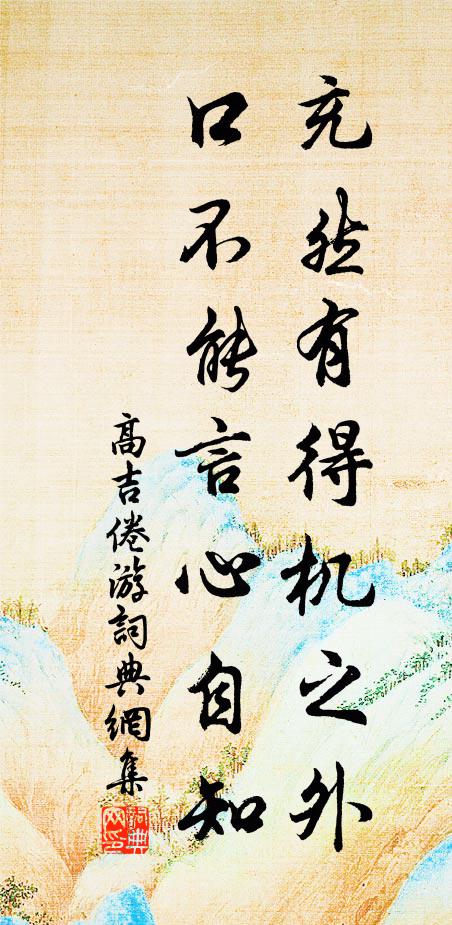 充然有得机之外
口不能言心自知
高吉倦游詞典網集
詞典
网印